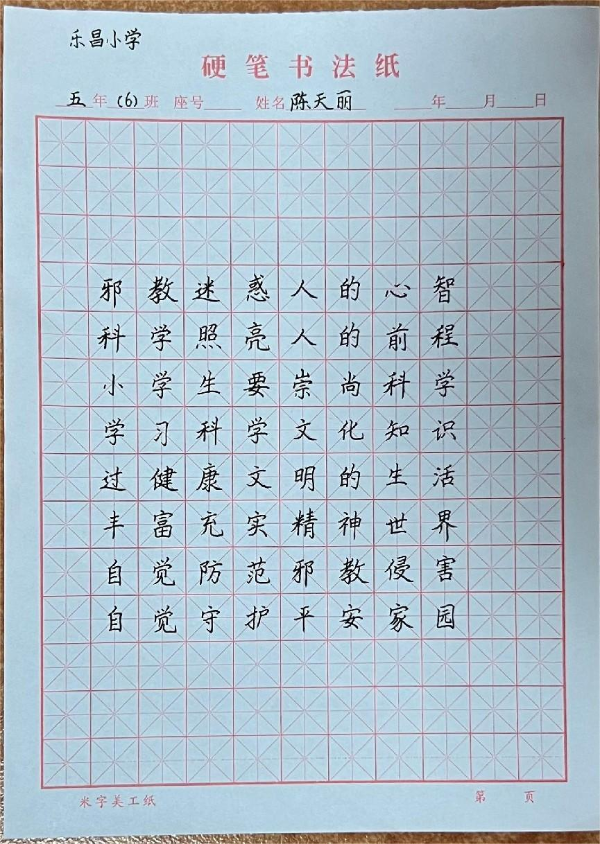 乐昌小学
硬笔书法纸
五年(6)班 座号 姓名陈天丽 年 月 日
邪教迷惑人的心智
科学照亮人的前程
小学生要崇尚科学
学习科学文化知识
过健康文明的生活
丰富充实精神世界
自觉防范邪教侵害
自觉守护平安家园
米字美工纸 第 页